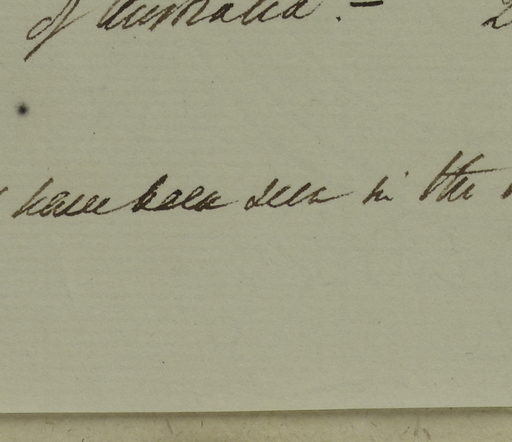 of Australia. –
have been seen in the